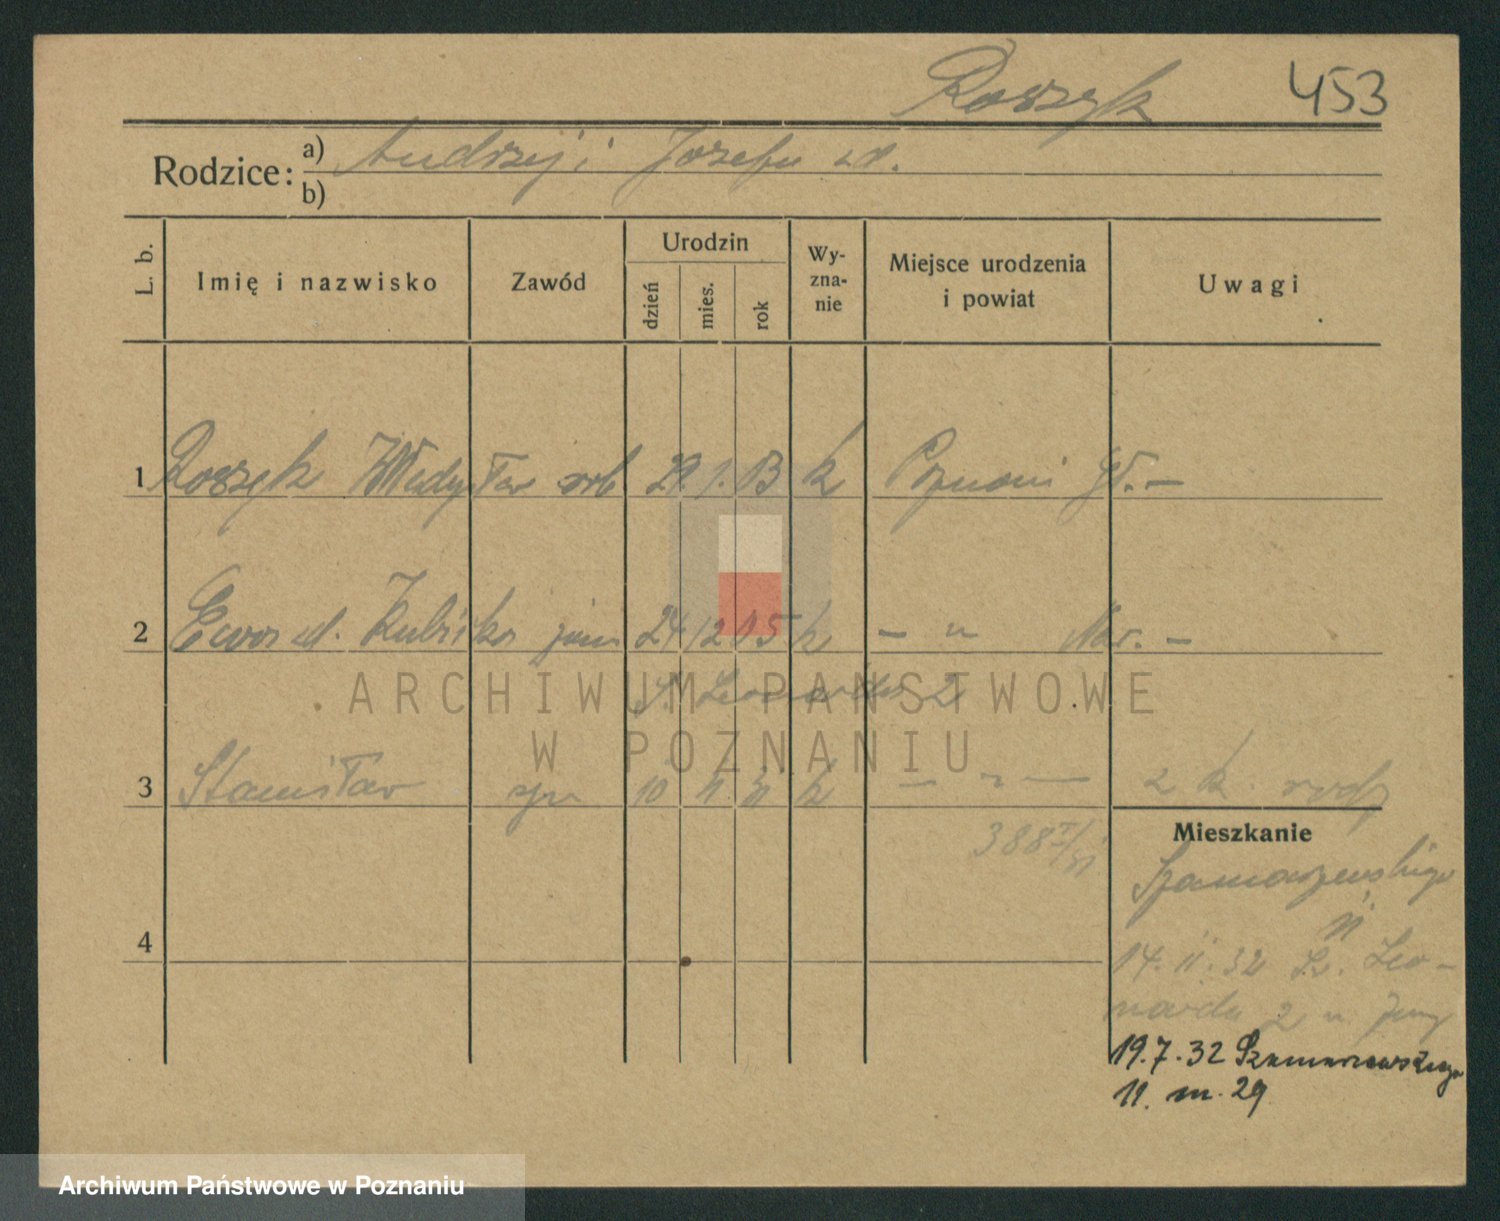 Roszyk 453
Rodzice: a) Andrzej i Józefa
b)
L. b. Imię i nazwisko Zawód Urodzin dzień mies. rok Wy-zna-nie Miejsce urodzenia i powiat Uwagi
1 Roszyk Władysław rob 1. k Poznań
2 Ewa d. Kubicka 24 12 05 k — " —
Leonarda 2
3 Stanisław 10 11 31 k — " — k.
388
Mieszkanie
Szamarzewskiego
11
14. 11. 32 Św. Leo-
narda 2 u
4
19.7.32 Szamarzewskiego
11. m. 29
ARCHIWUM PAŃSTWOWE
W POZNANIU
Archiwum Państwowe w Poznaniu